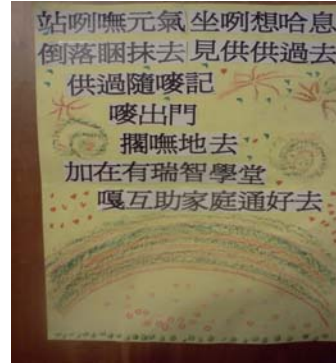 站咧嘸元氣 坐咧想哈息
倒落睏抹去 見供供過去
供過隨嘜記
嘜出門
擱嘸地去
加在有瑞智學堂
嘎互助家庭通好去